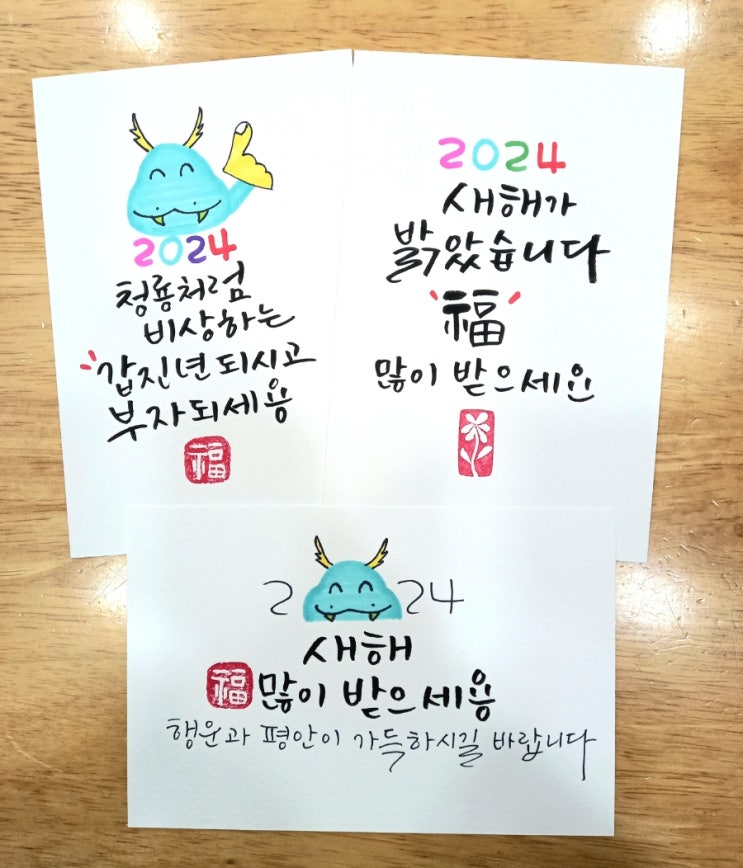 2024
청룡처럼
비상하는
갑진년 되시고
부자되세용
福
2024
새해가
밝았습니다
福
많이 받으세요
2 24
새해
福 많이 받으세용
행운과 평안이 가득하시길 바랍니다